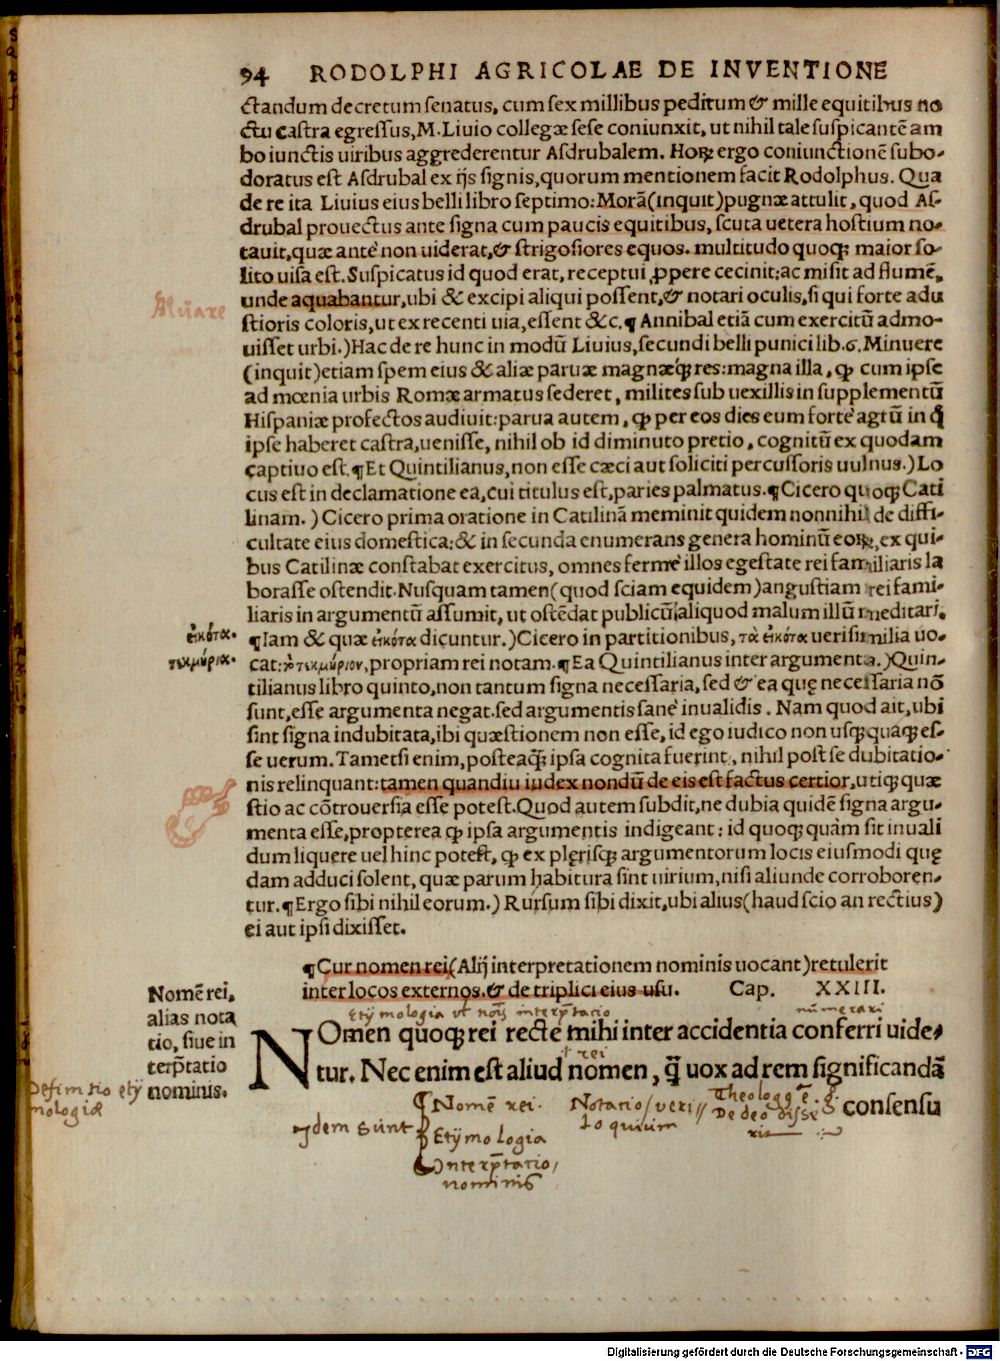 94 RODOLPHI AGRICOLAE DE INVENTIONE
ctandum decretum senatus, cum sex millibus peditum & mille equitibus no
ctu castra egressus, M. Liuio collegæ sese coniunxit, ut nihil tale suspicantē am
bo iunctis uiribus aggrederentur Asdrubalem. Hoꝝ ergo coniunctionē subo-
doratus est Asdrubal ex ijs signis, quorum mentionem facit Rodolphus. Qua
de re ita Liuius eius belli libro septimo: Morā (inquit) pugnæ attulit, quod As-
drubal prouectus ante signa cum paucis equitibus, scuta uetera hostium no-
tauit, quæ antè non uiderat, & strigosiores equos. multitudo quoqꝫ maior so-
lito uisa est. Suspicatus id quod erat, receptui ꝓpere cecinit: ac misit ad flumē,
unde aquabantur, ubi & excipi aliqui possent, & notari oculis, si qui forte adu
stioris coloris, ut ex recenti uia, essent &c. ¶ Annibal etiā cum exercitū admo-
uisset urbi.) Hac de re hunc in modū Liuius, secundi belli punici lib. 6. Minuere
(inquit) etiam spem eius & aliæ paruæ magnæq́ꝫ res: magna illa, ꝙ cum ipse
ad mœnia urbis Romæ armatus sederet, milites sub uexillis in supplementū
Hispaniæ profectos audiuit: parua autem, ꝙ per eos dies eum fortè agrū in q̄
ipse haberet castra, uenisse, nihil ob id diminuto pretio, cognitū ex quodam
captiuo est. ¶ Et Quintilianus, non esse cæci aut soliciti percussoris uulnus.) Lo
cus est in declamatione ea, cui titulus est, paries palmatus. ¶ Cicero quoqꝫ Cati
linam.) Cicero prima oratione in Catilinā meminit quidem nonnihil de diffi-
cultate eius domestica: & in secunda enumerans genera hominū eoꝝ, ex qui-
bus Catilinæ constabat exercitus, omnes fermè illos egestate rei familiaris la
borasse ostendit. Nusquam tamen (quod sciam equidem) angustiam rei fami-
liaris in argumentū assumit, ut ostēdat publicū aliquod malum illū meditari.
εἰκότα. ¶ Iam & quæ εἰκότα dicuntur.) Cicero in partitionibus, τὰ εἰκότα uerisimilia uo-
τεκμήρια. cat: τὸ τεκμήριον, propriam rei notam. ¶ Ea Quintilianus inter argumenta.) Quin-
tilianus libro quinto, non tantum signa necessaria, sed & ea quę necessaria nō
sunt, esse argumenta negat. sed argumentis sanè inualidis. Nam quod ait, ubi
sint signa indubitata, ibi quæstionem non esse, id ego iudico non usqꝫquaqꝫ es-
se uerum. Tametsi enim, posteaq̄ꝫ ipsa cognita fuerint, nihil post se dubitatio-
nis relinquant: tamen quandiu iudex nondū de eis est factus certior, utiqꝫ quæ
stio ac cōtrouersia esse potest. Quod autem subdit, ne dubia quidē signa argu-
menta esse, propterea ꝙ ipsa argumentis indigeant: id quoqꝫ quàm sit inuali
dum liquere uel hinc potest, ꝙ ex plęrisqꝫ argumentorum locis eiusmodi quę
dam adduci solent, quæ parum habitura sint uirium, nisi aliunde corroboren-
tur. ¶ Ergo sibi nihil eorum.) Rursum sibi dixit, ubi alius (haud scio an rectius)
ei aut ipsi dixisset.
¶ Cur nomen rei (Alij interpretationem nominis uocant) retulerit
inter locos externos. & de triplici eius usu. Cap. XXIII.
Nomē rei,
alias nota
tio, siue in
terp̄tatio
nominis.
Etÿmologia vt nois interp̄tatio
numerari
NOmen quoqꝫ rei recte mihi inter accidentia conferri uide-
rei
tur. Nec enim est aliud nomen, q̄ uox ad rem significandā
consensu
Definitio etÿ
mologiæ
Idem sunt
Nomē rei.
Etÿmologia
Interp̄tatio
nominis
Notatio / veri
loquium